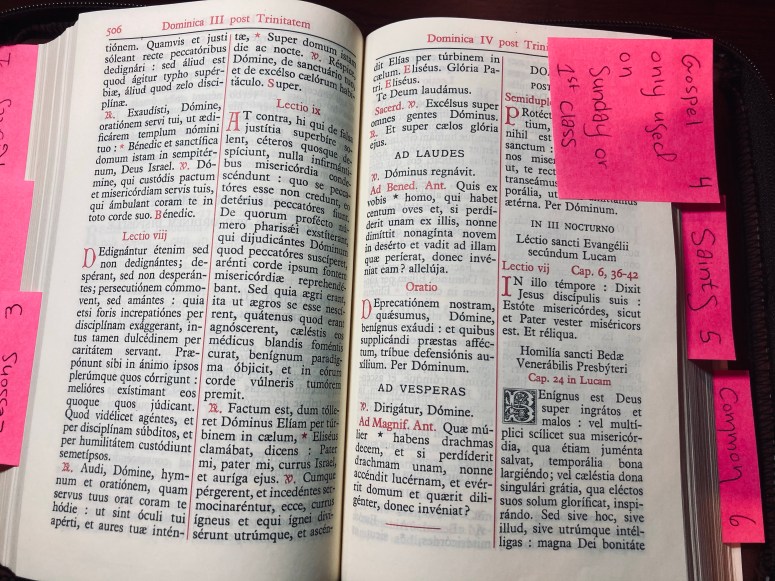 506 Dominica III post Trinitatem
tiónem. Quamvis et justi
sóleant recte peccatóribus
dedignári : sed áliud est
quod ágitur typho supér-
biæ, áliud quod zelo disci-
plínæ.
℟. Exaudísti, Dómine,
oratiónem servi tui, ut ædi-
ficárem templum nómini
tuo : * Bénedic et sanctífica
domum istam in sempitér-
num, Deus Israel. ℣. Dó-
mine, qui custódis pactum
et misericórdiam servis tuis,
qui ámbulant coram te in
toto corde suo. Bénedic.
Lectio viij
DEdignántur étenim sed
non dedignántes; de-
spérant, sed non desperán-
tes; persecutiónem cómmo-
vent, sed amántes : quia
etsi foris increpatiónes per
disciplínam exággerant, in-
tus tamen dulcédinem per
caritátem servant. Præ-
pónunt sibi in ánimo ipsos
plerúmque quos córrigunt :
melióres exístimant eos
quoque quos júdicant.
Quod vidélicet agéntes, et
per disciplínam súbditos, et
per humilitátem custódiunt
semetípsos.
℟. Audi, Dómine, hym-
num et oratiónem, quam
servus tuus orat coram te
hódie : ut sint óculi tui
apérti, et aures tuæ intén-
tæ, * Super domum istam
die ac nocte. ℣. Réspice,
Dómine, de sanctuário tuo
et de excélso cælórum habi-
táculo. Super.
Lectio ix
AT contra, hi qui de falsa
justítia superbíre so-
lent, céteros quosque de-
spíciunt, nulla infirmánti-
bus misericórdia conde-
scéndunt : quo se pecca-
tóres esse non credunt, eo
detérius peccatóres fiunt.
De quorum profécto nú-
mero pharisǽi exstíterant,
qui dijudicántes Dóminum
quod peccatóres suscíperet,
arénti corde ipsum fontem
misericórdiæ reprehendé-
bant. Sed quia ægri erant,
ita ut ægros se esse nescí-
rent, quátenus quod erant
agnóscerent, cæléstis eos
médicus blandis foméntis
curat, benígnum paradíg-
ma óbjicit, et in eórum
corde vúlneris tumórem
premit.
℟. Factum est, dum tólle-
ret Dóminus Elíam per túr-
binem in cælum, * Eliséus
clamábat, dicens : Pater
mi, pater mi, currus Israel,
et auríga ejus. ℣. Cumque
pérgerent, et incedéntes ser-
mocinaréntur, ecce, currus
ígneus et equi ígnei divi-
sérunt utrúmque, et ascén-
Dominica IV post
dit Elías per túrbinem in
cælum. Eliséus. Glória Pa-
tri. Eliséus.
Te Deum laudámus.
Sacerd. ℣. Excélsus super
omnes gentes Dóminus.
℟. Et super cælos glória
ejus.
AD LAUDES
℣. Dóminus regnávit.
Ad Bened. Ant. Quis ex
vobis * homo, qui habet
centum oves et, si perdí-
derit unam ex illis, nonne
dimíttit nonagínta novem
in desérto et vadit ad illam
quæ períerat, donec invé-
niat eam ? allelúja.
Oratio
DEprecatiónem nostram,
quǽsumus, Dómine,
benígnus exáudi : et quibus
supplicándi præstas afféc-
tum, tríbue defensiónis au-
xílium. Per Dóminum.
AD VESPERAS
℣. Dirigátur, Dómine.
Ad Magnif. Ant. Quæ mú-
lier * habens drachmas
decem, et si perdíderit
drachmam unam, nonne
accéndit lucérnam, et evér-
rit domum et quærit dili-
génter, donec invéniat ?
Semidupl
nihil est
sanctum :
nos miser
ut, te rect
transeámus
porália, ut
ætérna. Per Dóminum.
IN III NOCTURNO
Léctio sancti Evangélii
secúndum Lucam
Lectio vij Cap. 6, 36-42
IN illo témpore : Dixit
Jesus discípulis suis :
Estóte misericórdes, sicut
et Pater vester miséricors
est. Et réliqua.
Homilía sancti Bedæ
Venerábilis Presbýteri
Cap. 24 in Lucam
BEnígnus est Deus
super ingrátos et
malos : vel multí-
plici scílicet sua misericór-
dia, qua étiam juménta
salvat, temporália bona
largiéndo; vel cæléstia dona
singulári grátia, qua eléctos
suos solum gloríficat, inspi-
rándo. Sed sive hoc, sive
illud, sive utrúmque intél-
ligas : magna Dei bonitáte
Gospel
only used
on
Sunday or
1st Class
4
Saints 5
Common 6
3